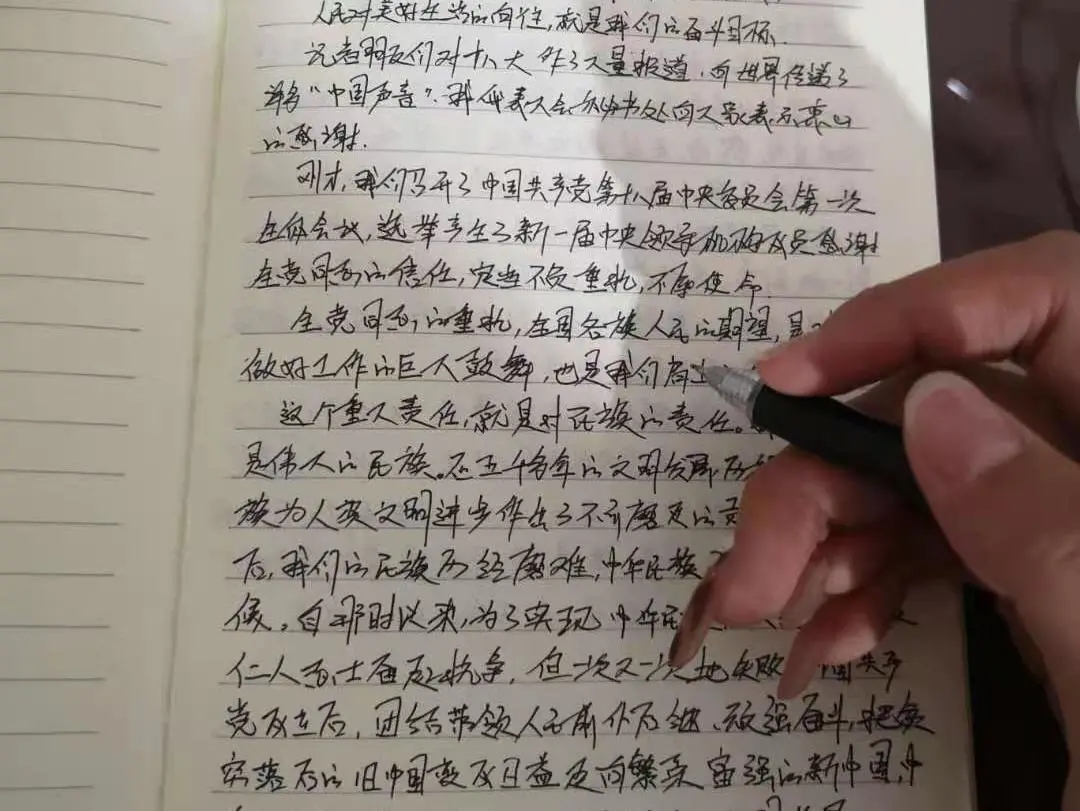 人民对美好生活的向往，就是我们的奋斗目标.
记者朋友们对十八大作了大量报道，向世界传递了
许多"中国声音".我代表大会秘书处向大家表示衷心
的感谢.
刚才，我们召开了中国共产党第十八届中央委员会第一次
全体会议，选举产生了新一届中央领导机构成员感谢
全党同志的信任，定当不负重托，不辱使命.
全党同志的重托，全国各族人民的期望，是
做好工作的巨大鼓舞，也是我们肩上
这个重大责任，就是对民族的责任。
是伟大的民族。在五千多年的文明发展
族为人类文明进步作出了不可磨灭的
后，我们的民族历经磨难，中华民族
候。自那时以来，为了实现中华民
仁人志士奋起抗争，但一次又一次地失败 国共产
党成立后，团结带领人民前仆后继、顽强奋斗，把贫
穷落后的旧中国变成日益走向繁荣富强的新中国，中